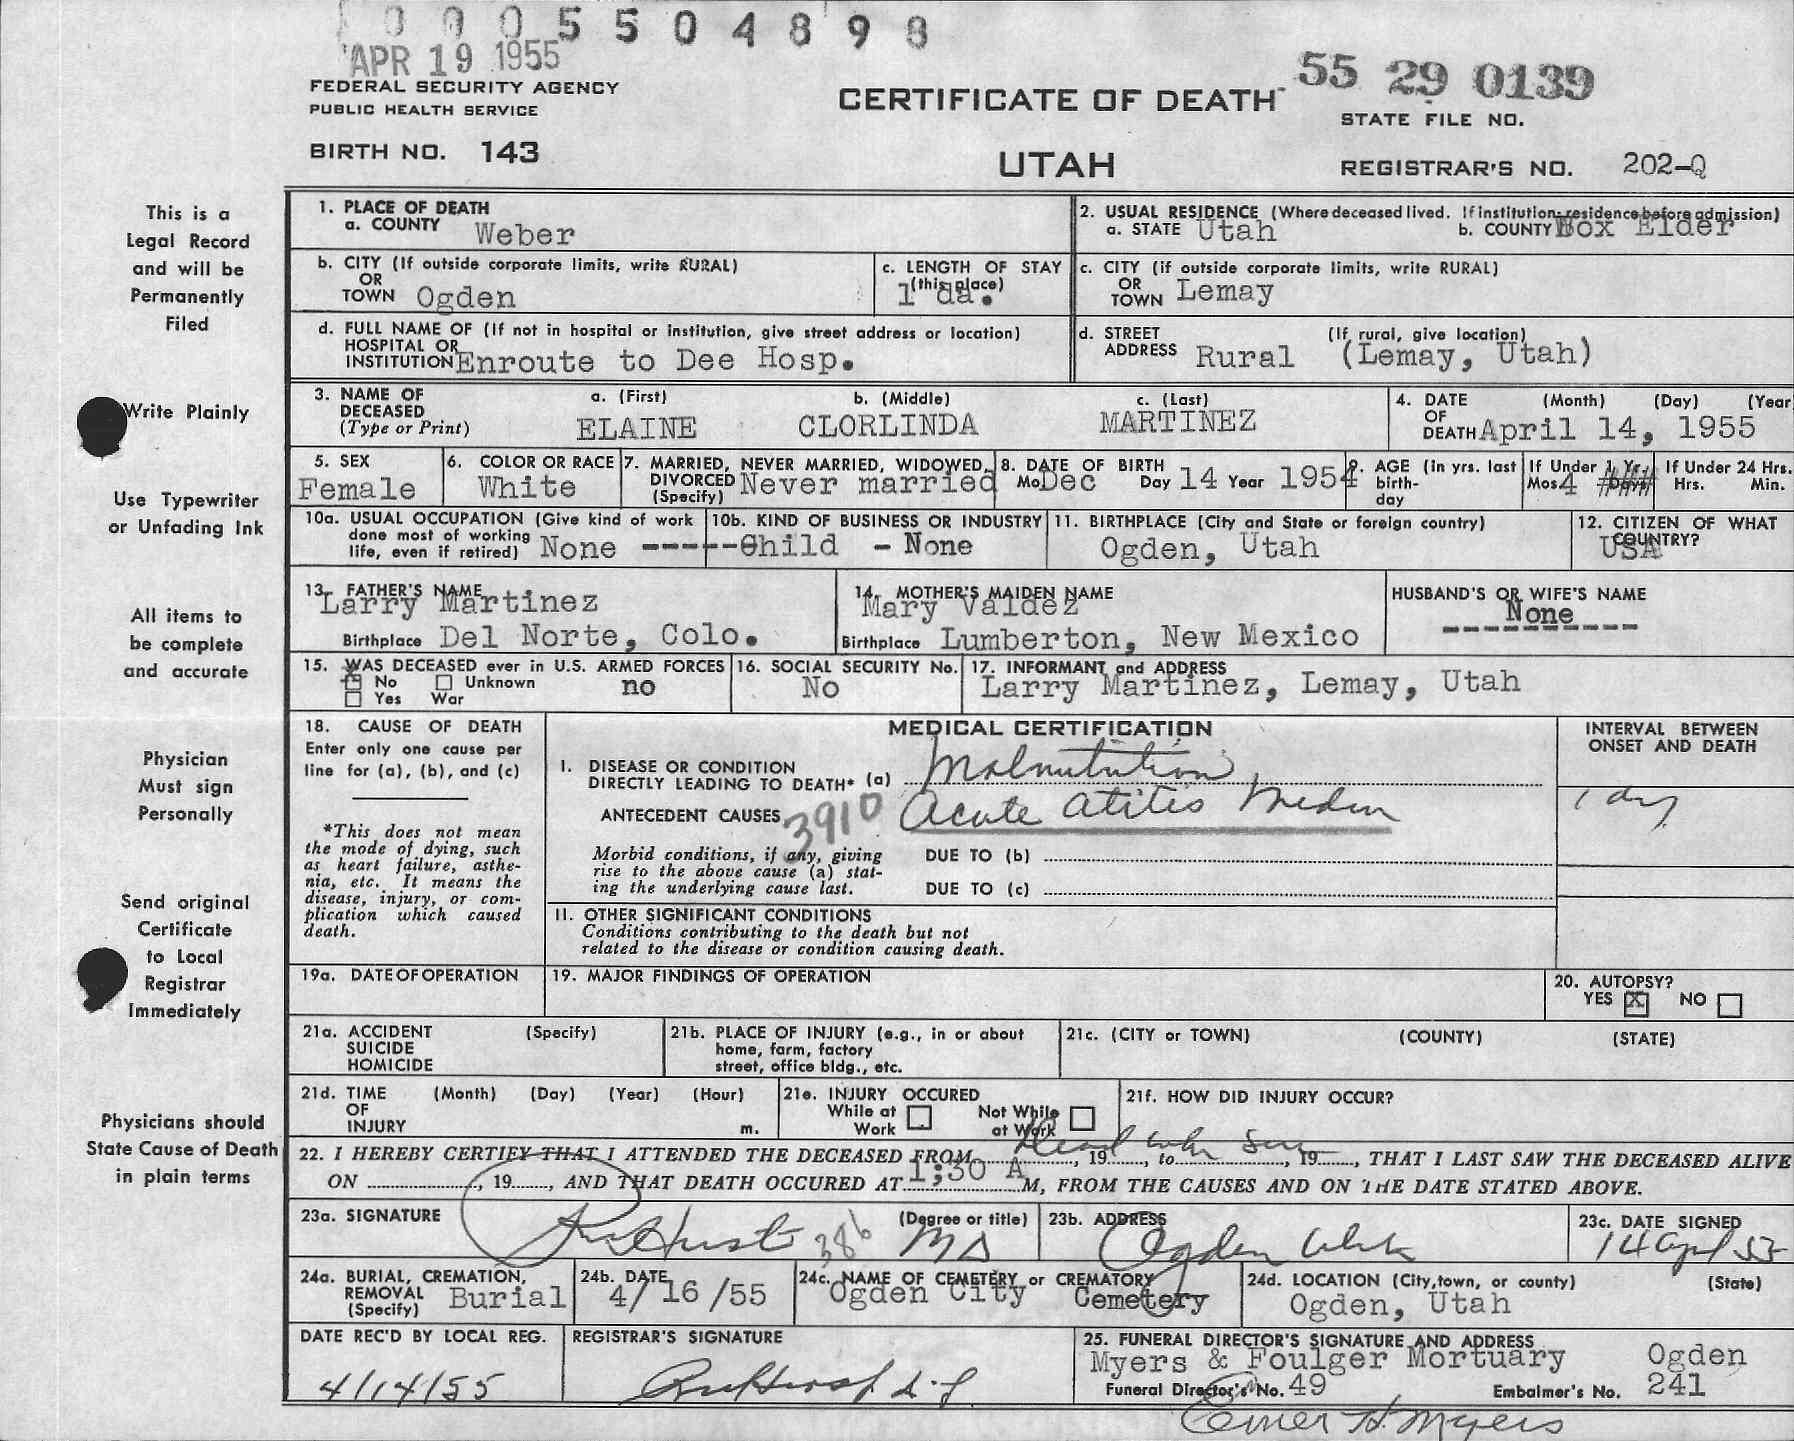 0 0 0 5 5 0 4 8 9 8
APR 19 1955
FEDERAL SECURITY AGENCY
PUBLIC HEALTH SERVICE
BIRTH NO. 143
CERTIFICATE OF DEATH
UTAH
55 29 0139
STATE FILE NO.
REGISTRAR'S NO. 202-Q
This is a
Legal Record
and will be
Permanently
Filed
Write Plainly
Use Typewriter
or Unfading Ink
All items to
be complete
and accurate
Physician
Must sign
Personally
Send original
Certificate
to Local
Registrar
Immediately
Physicians should
State Cause of Death
in plain terms
1. PLACE OF DEATH
a. COUNTY Weber
2. USUAL RESIDENCE (Where deceased lived. If institution: residence before admission)
a. STATE Utah b. COUNTY Box Elder
b. CITY (If outside corporate limits, write RURAL)
OR
TOWN Ogden
c. LENGTH OF STAY
(this place)
1 da.
c. CITY (if outside corporate limits, write RURAL)
OR
TOWN Lemay
d. FULL NAME OF (If not in hospital or institution, give street address or location)
HOSPITAL OR
INSTITUTION Enroute to Dee Hosp.
d. STREET (If rural, give location)
ADDRESS Rural (Lemay, Utah)
3. NAME OF
DECEASED
(Type or Print)
a. (First) b. (Middle) c. (Last)
ELAINE CLORLINDA MARTINEZ
4. DATE (Month) (Day) (Year
OF
DEATH April 14, 1955
5. SEX
Female
6. COLOR OR RACE
White
7. MARRIED, NEVER MARRIED, WIDOWED,
DIVORCED
(Specify) Never married
8. DATE OF BIRTH
Mo. Dec Day 14 Year 1954
9. AGE (in yrs. last
birth-
day
If Under 1 Yr.
Mos. 4 Days
If Under 24 Hrs.
Hrs. Min.
10a. USUAL OCCUPATION (Give kind of work
done most of working
life, even if retired) None -----
10b. KIND OF BUSINESS OR INDUSTRY
-Child - None
11. BIRTHPLACE (City and State or foreign country)
Ogden, Utah
12. CITIZEN OF WHAT
COUNTRY?
USA
13. FATHER'S NAME
Larry Martinez
Birthplace Del Norte, Colo.
14. MOTHER'S MAIDEN NAME
Mary Valdez
Birthplace Lumberton, New Mexico
HUSBAND'S OR WIFE'S NAME
None
----------
15. WAS DECEASED ever in U.S. ARMED FORCES
No Unknown no
Yes War
16. SOCIAL SECURITY No.
No
17. INFORMANT and ADDRESS
Larry Martinez, Lemay, Utah
18. CAUSE OF DEATH
Enter only one cause per
line for (a), (b), and (c)
*This does not mean
the mode of dying, such
as heart failure, asthe-
nia, etc. It means the
disease, injury, or com-
plication which caused
death.
MEDICAL CERTIFICATION
INTERVAL BETWEEN
ONSET AND DEATH
I. DISEASE OR CONDITION
DIRECTLY LEADING TO DEATH* (a) Malnutrition,
ANTECEDENT CAUSES 3910 Acute Otitis Media
1 day
Morbid conditions, if any, giving
rise to the above cause (a) stat-
ing the underlying cause last.
DUE TO (b)
DUE TO (c)
II. OTHER SIGNIFICANT CONDITIONS
Conditions contributing to the death but not
related to the disease or condition causing death.
19a. DATE OF OPERATION
19. MAJOR FINDINGS OF OPERATION
20. AUTOPSY?
YES X NO
21a. ACCIDENT (Specify)
SUICIDE
HOMICIDE
21b. PLACE OF INJURY (e.g., in or about
home, farm, factory
street, office bldg., etc.
21c. (CITY or TOWN) (COUNTY) (STATE)
21d. TIME (Month) (Day) (Year) (Hour)
OF
INJURY m.
21e. INJURY OCCURED
While at Work Not While at Work
21f. HOW DID INJURY OCCUR?
Dead when seen
22. I HEREBY CERTIFY THAT I ATTENDED THE DECEASED FROM , 19 , to , 19 , THAT I LAST SAW THE DECEASED ALIVE
ON , 19 , AND THAT DEATH OCCURED AT 1;30 A M, FROM THE CAUSES AND ON THE DATE STATED ABOVE.
23a. SIGNATURE (Degree or title)
386 MD
23b. ADDRESS
Ogden Utah
23c. DATE SIGNED
14 April 55
24a. BURIAL, CREMATION,
REMOVAL
(Specify) Burial
24b. DATE
4/16/55
24c. NAME OF CEMETERY or CREMATORY
Ogden City Cemetery
24d. LOCATION (City, town, or county) (State)
Ogden, Utah
DATE REC'D BY LOCAL REG.
4/14/55
REGISTRAR'S SIGNATURE
25. FUNERAL DIRECTOR'S SIGNATURE AND ADDRESS
Myers & Foulger Mortuary Ogden
Funeral Director's No. 49 Embalmer's No. 241
Elmer H. Myers